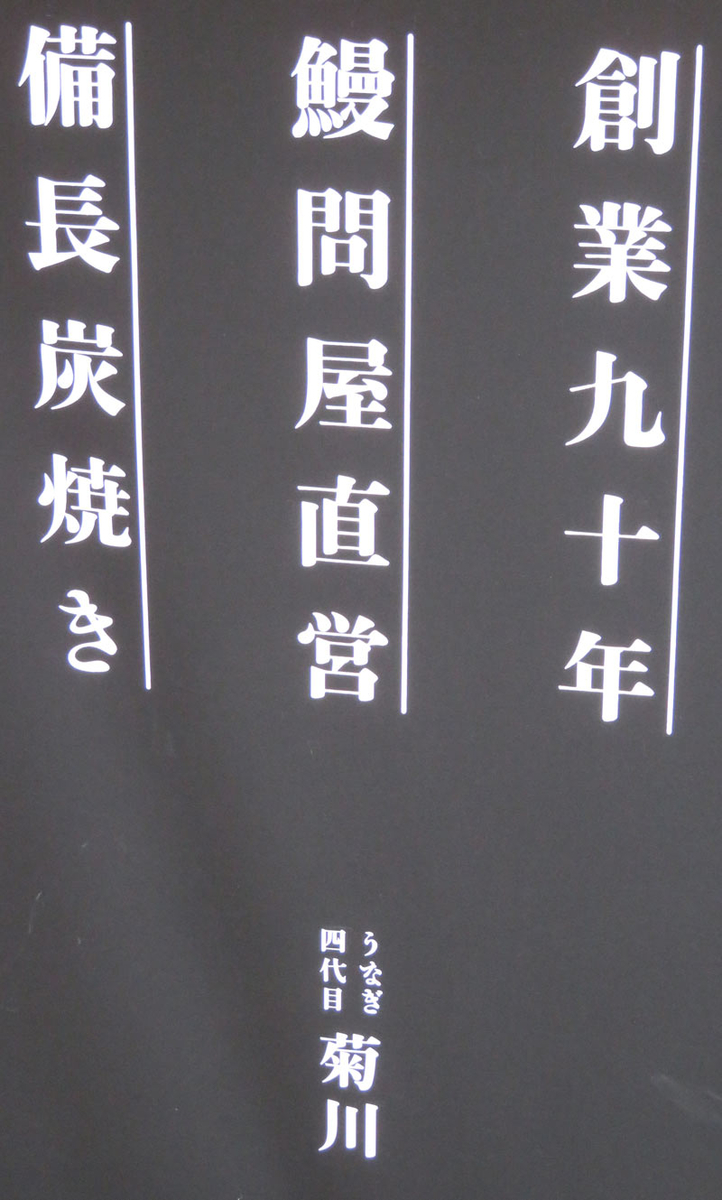 創業九十年
鰻問屋直営
備長炭焼き
うなぎ
四代目
菊川